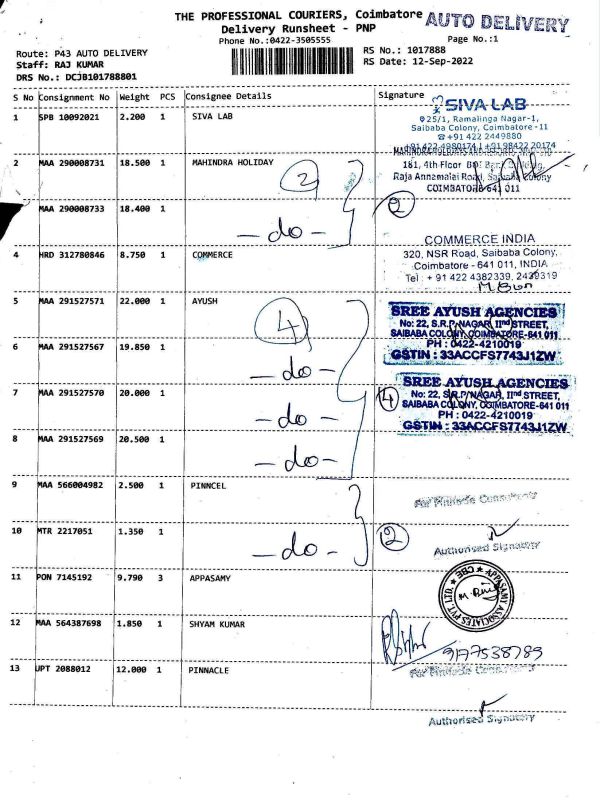 THE PROFESSIONAL COURIERS, Coimbatore
AUTO DELIVERY
Delivery Runsheet - PNP
Phone No.:0422-3505555
Page No.:1
Route: P43 AUTO DELIVERY
RS No.: 1017888
Staff: RAJ KUMAR
RS Date: 12-Sep-2022
DRS No.: DCJB101788801
S No Consignment No Weight PCS Consignee Details Signature
1 SPB 10092021 2.200 1 SIVA LAB
SIVA LAB
25/1, Ramalinga Nagar-1,
Saibaba Colony, Coimbatore -11
+91 422 2449880
+91 422 4980174 | +91 98422 20174
2 MAA 290008731 18.500 1 MAHINDRA HOLIDAY
2
181, 4th Floor
Raja Annamalai Road, Saibaba Colony
COIMBATORE-641 011
MAA 290008733 18.400 1
- do -
2
4 HRD 312780846 8.750 1 COMMERCE
COMMERCE INDIA
320, NSR Road, Saibaba Colony,
Coimbatore - 641 011, INDIA
Tel : + 91 422 4382339, 2439319
5 MAA 291527571 22.000 1 AYUSH
4
SREE AYUSH AGENCIES
No: 22, S.R.P.NAGAR, IInd STREET,
SAIBABA COLONY, COIMBATORE-641 011
PH : 0422-4210019
GSTIN : 33ACCFS7743J1ZW
6 MAA 291527567 19.850 1
- do -
7 MAA 291527570 20.000 1
- do -
4
SREE AYUSH AGENCIES
No: 22, S.R.P.NAGAR, IInd STREET,
SAIBABA COLONY, COIMBATORE-641 011
PH : 0422-4210019
GSTIN : 33ACCFS7743J1ZW
8 MAA 291527569 20.500 1
- do -
9 MAA 566004982 2.500 1 PINNCEL
For Pinnacle Consultants
10 MTR 2217051 1.350 1
- do -
2
Authorised Signatory
11 PON 7145192 9.790 3 APPASAMY
APPASAMY ASSOCIATES PVT. LTD. ★ CBE ★
12 MAA 564387698 1.850 1 SHYAM KUMAR
9177538789
13 UPT 2088012 12.000 1 PINNACLE
For Pinnacle Consultants
Authorised Signatory